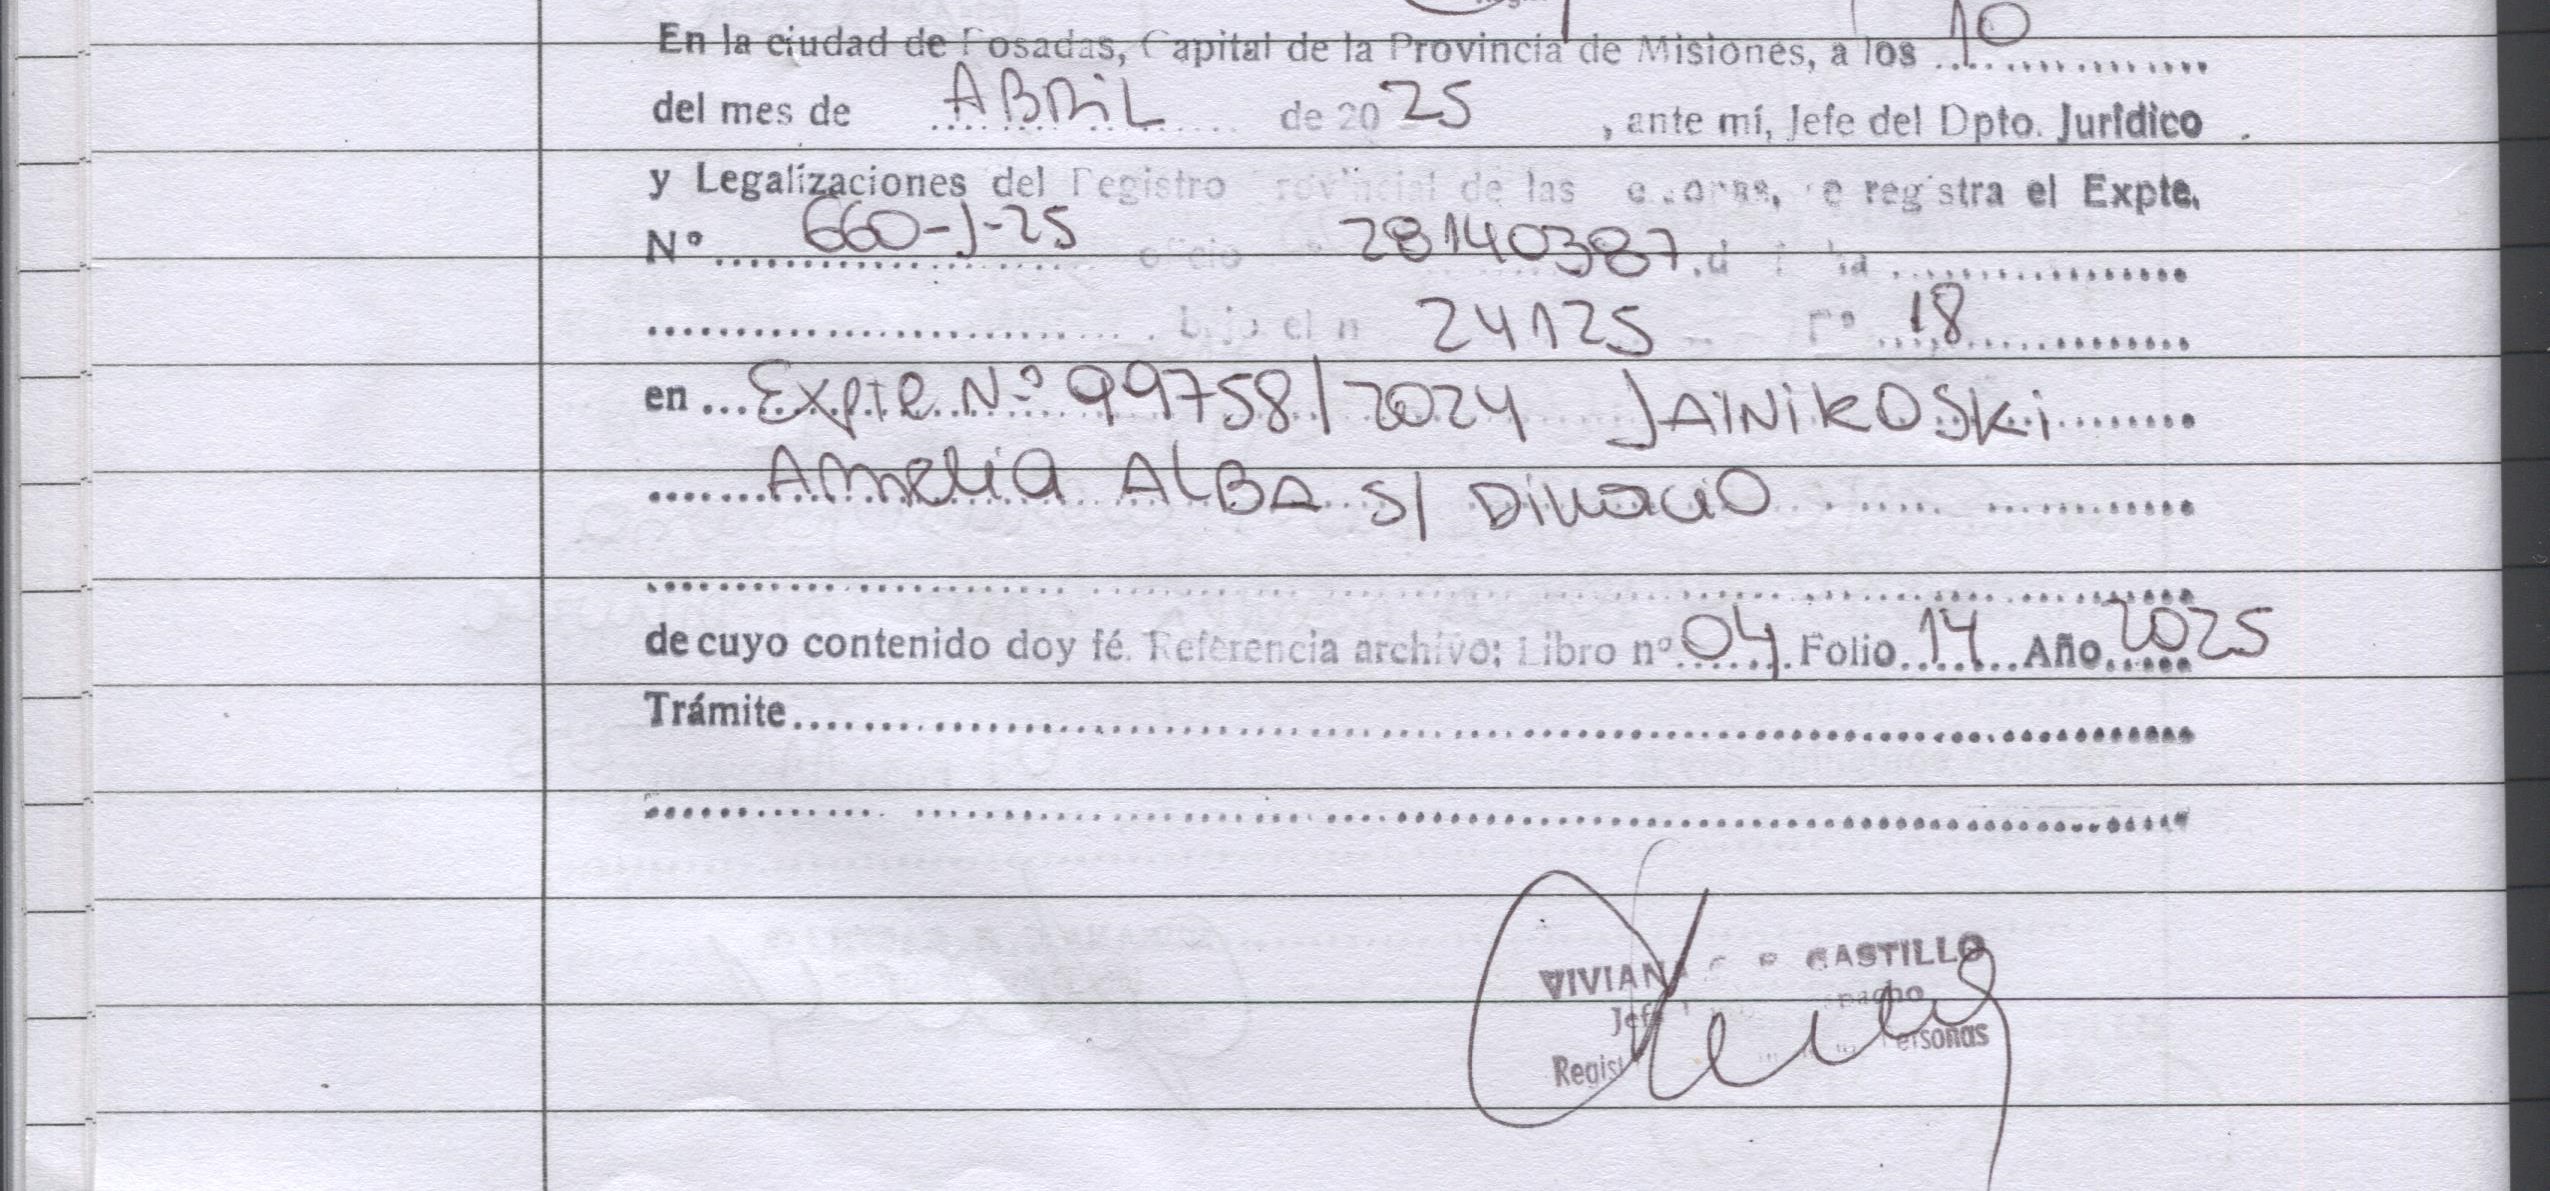 En la ciudad de Posadas, Capital de la Provincia de Misiones, a los 10
del mes de ABRIL de 2025, ante mí, Jefe del Dpto. Jurídico
y Legalizaciones del Registro Provincial de las se registra el Expte.
N° 660-J-25 oficio 28140387
bajo el n 24125 F° 18
en Expte Nº 99758/2024 JAINIKOSKI
AMELIA ALBA S/ Divorcio
de cuyo contenido doy fé. Referencia archivo: Libro nº 04 Folio 14 Año 2025
Trámite
CASTILLO
Personas